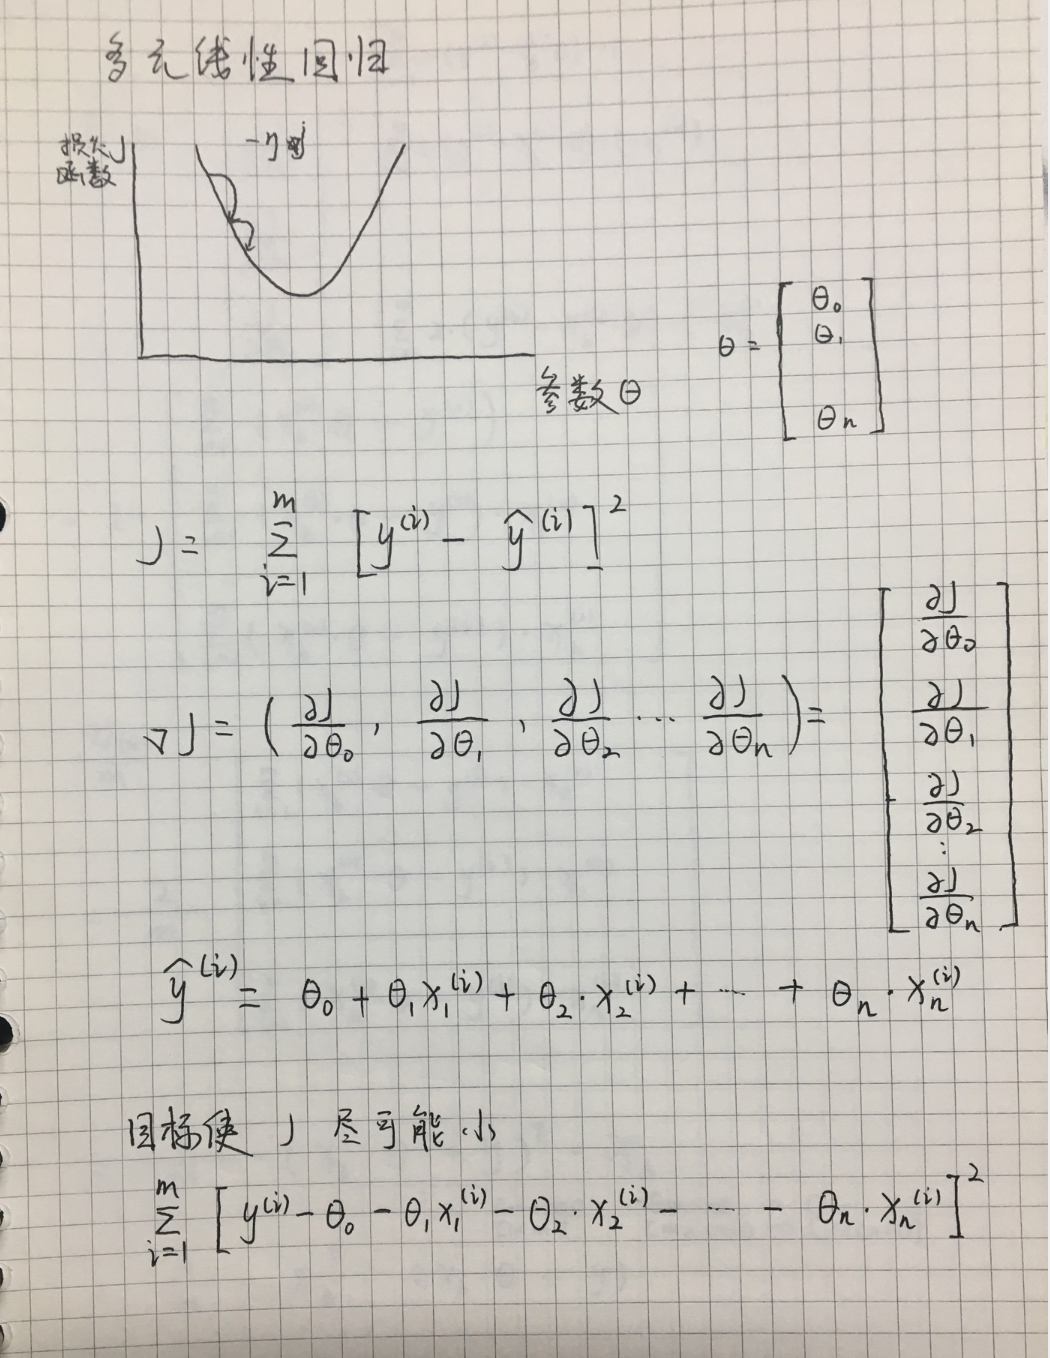 多元线性回归
损失J
函数
-η
参数θ
θ = [ θ₀
θ₁
θn ]
J = ∑_{i=1}^{m} [y^{(i)} - ŷ^{(i)}]²
∇J = (∂J/∂θ₀, ∂J/∂θ₁, ∂J/∂θ₂ ... ∂J/∂θn) = [ ∂J/∂θ₀
∂J/∂θ₁
∂J/∂θ₂
⋮
∂J/∂θn ]
ŷ^{(i)} = θ₀ + θ₁x₁^{(i)} + θ₂·x₂^{(i)} + ... + θn·xn^{(i)}
目标使 J 尽可能小
∑_{i=1}^{m} [y^{(i)} - θ₀ - θ₁x₁^{(i)} - θ₂·x₂^{(i)} - ... - θn·xn^{(i)}]²